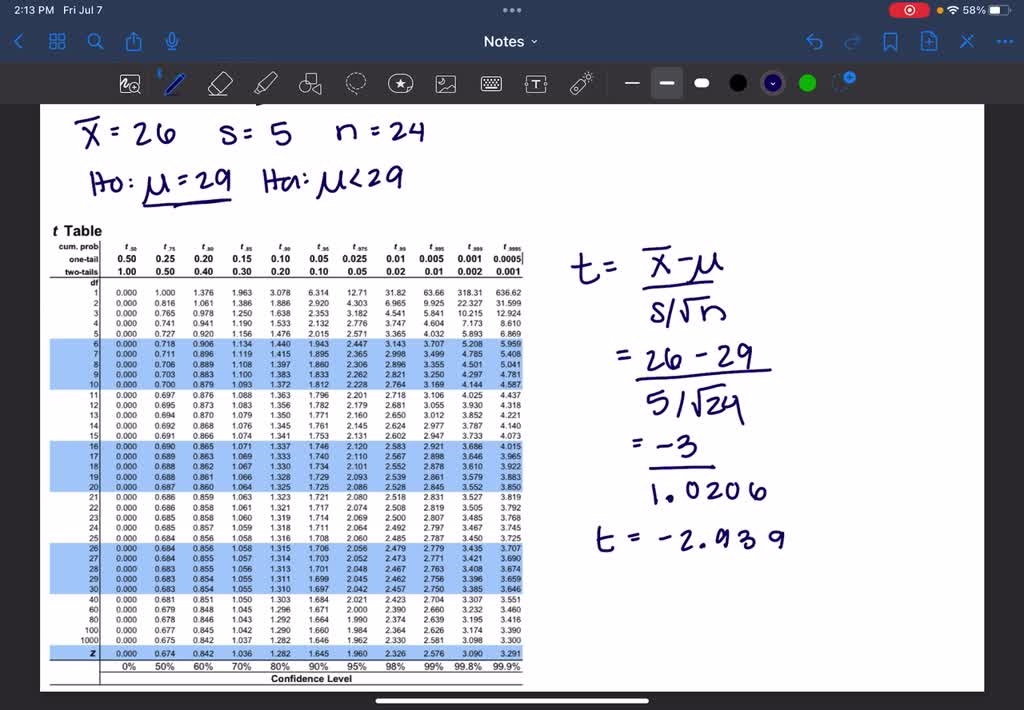 2:13 PM Fri Jul 7
58%
Notes
x̄ = 26 s = 5 n = 24
Ho: μ = 29 Ha: μ < 29
t Table
cum. prob t.50 t.75 t.80 t.85 t.90 t.95 t.975 t.99 t.995 t.999 t.9995
one-tail 0.50 0.25 0.20 0.15 0.10 0.05 0.025 0.01 0.005 0.001 0.0005
two-tails 1.00 0.50 0.40 0.30 0.20 0.10 0.05 0.02 0.01 0.002 0.001
df
1 0.000 1.000 1.376 1.963 3.078 6.314 12.71 31.82 63.66 318.31 636.62
2 0.000 0.816 1.061 1.386 1.886 2.920 4.303 6.965 9.925 22.327 31.599
3 0.000 0.765 0.978 1.250 1.638 2.353 3.182 4.541 5.841 10.215 12.924
4 0.000 0.741 0.941 1.190 1.533 2.132 2.776 3.747 4.604 7.173 8.610
5 0.000 0.727 0.920 1.156 1.476 2.015 2.571 3.365 4.032 5.893 6.869
6 0.000 0.718 0.906 1.134 1.440 1.943 2.447 3.143 3.707 5.208 5.959
7 0.000 0.711 0.896 1.119 1.415 1.895 2.365 2.998 3.499 4.785 5.408
8 0.000 0.706 0.889 1.108 1.397 1.860 2.306 2.896 3.355 4.501 5.041
9 0.000 0.703 0.883 1.100 1.383 1.833 2.262 2.821 3.250 4.297 4.781
10 0.000 0.700 0.879 1.093 1.372 1.812 2.228 2.764 3.169 4.144 4.587
11 0.000 0.697 0.876 1.088 1.363 1.796 2.201 2.718 3.106 4.025 4.437
12 0.000 0.695 0.873 1.083 1.356 1.782 2.179 2.681 3.055 3.930 4.318
13 0.000 0.694 0.870 1.079 1.350 1.771 2.160 2.650 3.012 3.852 4.221
14 0.000 0.692 0.868 1.076 1.345 1.761 2.145 2.624 2.977 3.787 4.140
15 0.000 0.691 0.866 1.074 1.341 1.753 2.131 2.602 2.947 3.733 4.073
16 0.000 0.690 0.865 1.071 1.337 1.746 2.120 2.583 2.921 3.686 4.015
17 0.000 0.689 0.863 1.069 1.333 1.740 2.110 2.567 2.898 3.646 3.965
18 0.000 0.688 0.862 1.067 1.330 1.734 2.101 2.552 2.878 3.610 3.922
19 0.000 0.688 0.861 1.066 1.328 1.729 2.093 2.539 2.861 3.579 3.883
20 0.000 0.687 0.860 1.064 1.325 1.725 2.086 2.528 2.845 3.552 3.850
21 0.000 0.686 0.859 1.063 1.323 1.721 2.080 2.518 2.831 3.527 3.819
22 0.000 0.686 0.858 1.061 1.321 1.717 2.074 2.508 2.819 3.505 3.792
23 0.000 0.685 0.858 1.060 1.319 1.714 2.069 2.500 2.807 3.485 3.768
24 0.000 0.685 0.857 1.059 1.318 1.711 2.064 2.492 2.797 3.467 3.745
25 0.000 0.684 0.856 1.058 1.316 1.708 2.060 2.485 2.787 3.450 3.725
26 0.000 0.684 0.856 1.058 1.315 1.706 2.056 2.479 2.779 3.435 3.707
27 0.000 0.684 0.855 1.057 1.314 1.703 2.052 2.473 2.771 3.421 3.690
28 0.000 0.683 0.855 1.056 1.313 1.701 2.048 2.467 2.763 3.408 3.674
29 0.000 0.683 0.854 1.055 1.311 1.699 2.045 2.462 2.756 3.396 3.659
30 0.000 0.683 0.854 1.055 1.310 1.697 2.042 2.457 2.750 3.385 3.646
40 0.000 0.681 0.851 1.050 1.303 1.684 2.021 2.423 2.704 3.307 3.551
60 0.000 0.679 0.848 1.045 1.296 1.671 2.000 2.390 2.660 3.232 3.460
80 0.000 0.678 0.846 1.043 1.292 1.664 1.990 2.374 2.639 3.195 3.416
100 0.000 0.677 0.845 1.042 1.290 1.660 1.984 2.364 2.626 3.174 3.390
1000 0.000 0.675 0.842 1.037 1.282 1.646 1.962 2.330 2.581 3.098 3.300
z 0.000 0.674 0.842 1.036 1.282 1.645 1.960 2.326 2.576 3.090 3.291
0% 50% 60% 70% 80% 90% 95% 98% 99% 99.8% 99.9%
Confidence Level
t = x̄ - μ
s/√n
= 26 - 29
5/√24
= -3
1.0206
t = -2.939